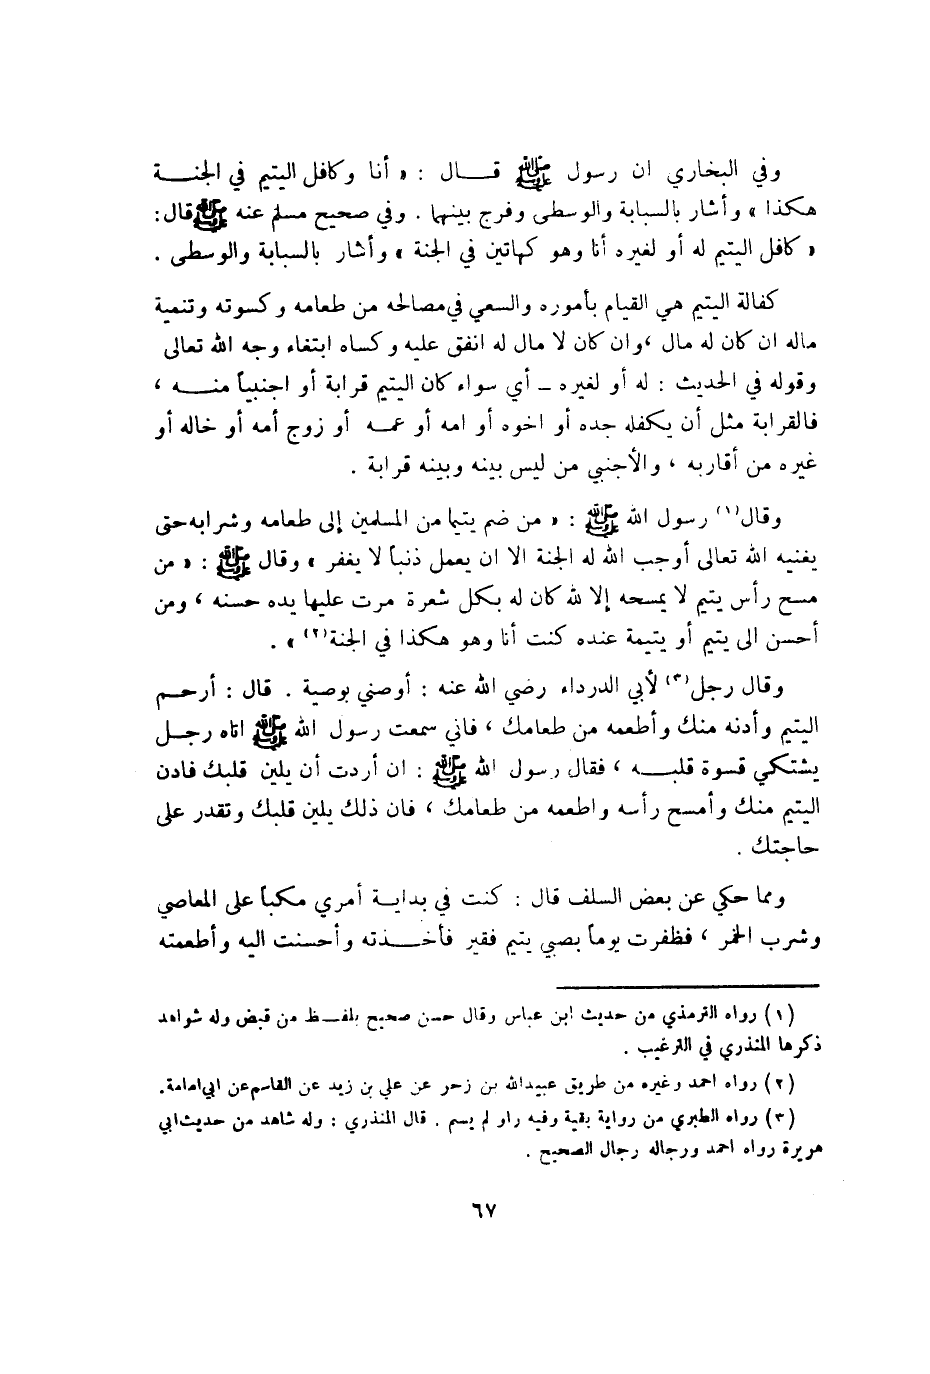 وفي البخاري ان رسول ﷺ قـــال : « أنا وكافل اليتيم في الجنـــة
هكذا » وأشار بالسبابة والوسطى وفرج بينهما . وفي صحيح مسلم عنه ﷺ قال :
« كافل اليتيم له أو لغيره أنا وهو كهاتين في الجنة » وأشار بالسبابة والوسطى .
كفالة اليتيم هي القيام بأموره والسعي في مصالحه من طعامه وكسوته وتنمية
ماله ان كان له مال ، وان كان لا مال له انفق عليه وكساه ابتغاء وجه الله تعالى
وقوله في الحديث : له أو لغيره - أي سواء كان اليتيم قرابة أو اجنبياً منـــه ،
فالقرابة مثل أن يكفله جده أو اخوه أو امه أو عمـه أو زوج أمه أو خاله أو
غيره من أقاربه ، والأجنبي من ليس بينه وبينه قرابة .
وقال(١) رسول الله ﷺ : « من ضم يتيما من المسلمين إلى طعامه وشرابه حتى
يغنيه الله تعالى أوجب الله له الجنة الا ان يعمل ذنباً لا يغفر » وقال ﷺ : « من
مسح رأس يتيم لا يمسحه إلا لله كان له بكل شعرة مرت عليها يده حسنه ، ومن
أحسن الى يتيم أو يتيمة عنده كنت أنا وهو هكذا في الجنة(٢) » .
وقال رجل(٣) لأبي الدرداء رضي الله عنه : أوصني بوصية . قال : أرحـم
اليتيم وأدنه منك وأطعمه من طعامك ، فاني سمعت رسول الله ﷺ اتاه رجـل
يشتكي قسوة قلبـــه ، فقال رسول الله ﷺ : ان أردت أن يلين قلبك فادن
اليتيم منك وأمسح رأسه واطعمه من طعامك ، فان ذلك يلين قلبك وتقدر على
حاجتك .
ومما حكي عن بعض السلف قال : كنت في بدايـة أمري مكباً على المعاصي
وشرب الخمر ، فظفرت يوماً بصبي يتيم فقير فأخـــذته وأحسنت اليه وأطعمته
(١) رواه الترمذي من حديث ابن عباس وقال حسن صحيح بلفـظ من قبض وله شواهد
ذكرها المنذري في الترغيب .
(٢) رواه احمد وغيره من طريق عبيدالله بن زحر عن علي بن زيد عن القاسم عن ابي امامة .
(٣) رواه الطبري من رواية بقية وفيه راو لم يسم . قال المنذري : وله شاهد من حديث ابي
هريرة رواه احمد ورجاله رجال الصحيح .
٦٧